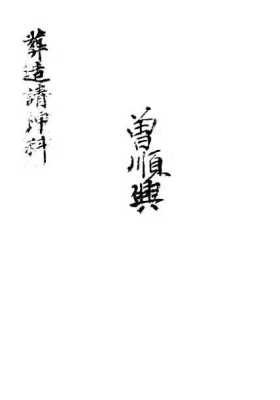 曾順興
葬造請神科